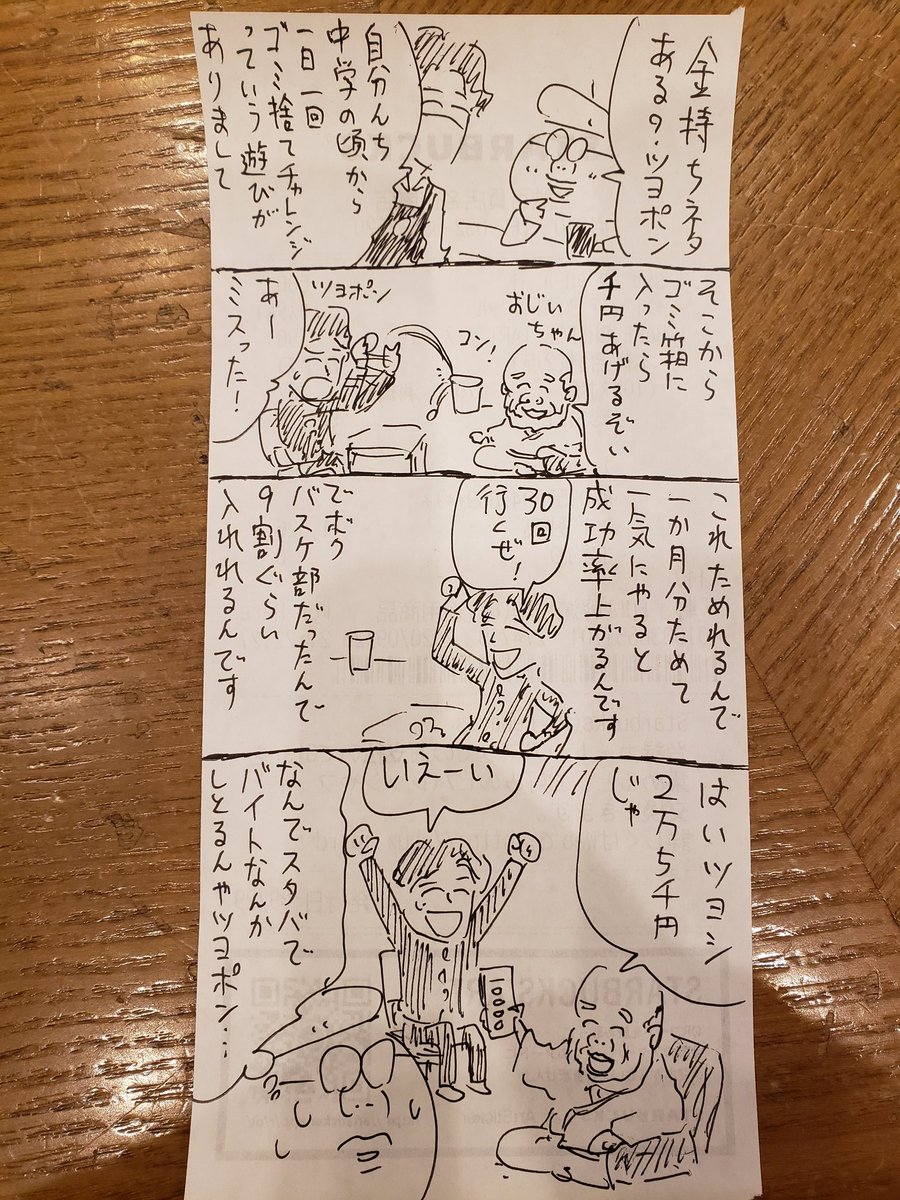 金持ちネタ
ある?・ツヨポン
自分んち
中学の頃から
一日一回
ゴミ捨てチャレンジ
っていう遊びが
ありまして
そこから
ゴミ箱に
入ったら
千円あげるぞい
おじい
ちゃん
コン!
ツヨポン
あー
ミスった!
これためれるんで
一か月分ためて
一気にやると
成功率上がるんです
30回
行くぜ!
でボク
バスケ部だったんで
9割ぐらい
入れれるんです
はいツヨシ
2万7千円
じゃ
いえーい
なんでスタバで
バイトなんか
しとるんやツヨポン…